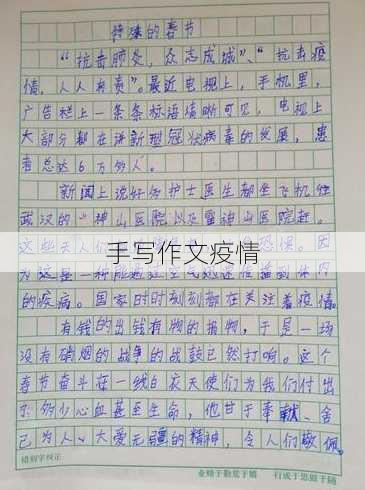 特殊的春节
“抗击肺炎，众志成城”、“抗击疫
情，人人有责”。最近电视上，手机里，
广告栏上一条条标语清晰可见，电视上
大部分都在讲新型冠状病毒的发展，患
者总达6万多人。
新闻上说好多护士医生都坐飞机往
武汉的“神山医院以及雷神山医院赶。
这些天人们
恐惧。因
为这是一种能通过空气迅速传播到体内
的疾病。国家时时刻刻都在关注着疫情。
手写作文疫情
有钱的出钱有物的捐物，于是一场
没有硝烟的战争的战鼓已然打响。这个
春节奋斗在一线白衣天使们为我们付出
多少心血甚至生命，他甘于奉献、舍
己为人、大爱无疆的精神，令人们敬佩。
错别字纠正
业精于勤荒于嬉
行成于思毁于随